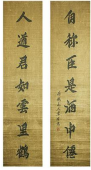 自称臣是酒中仙
人道君如雲里鶴